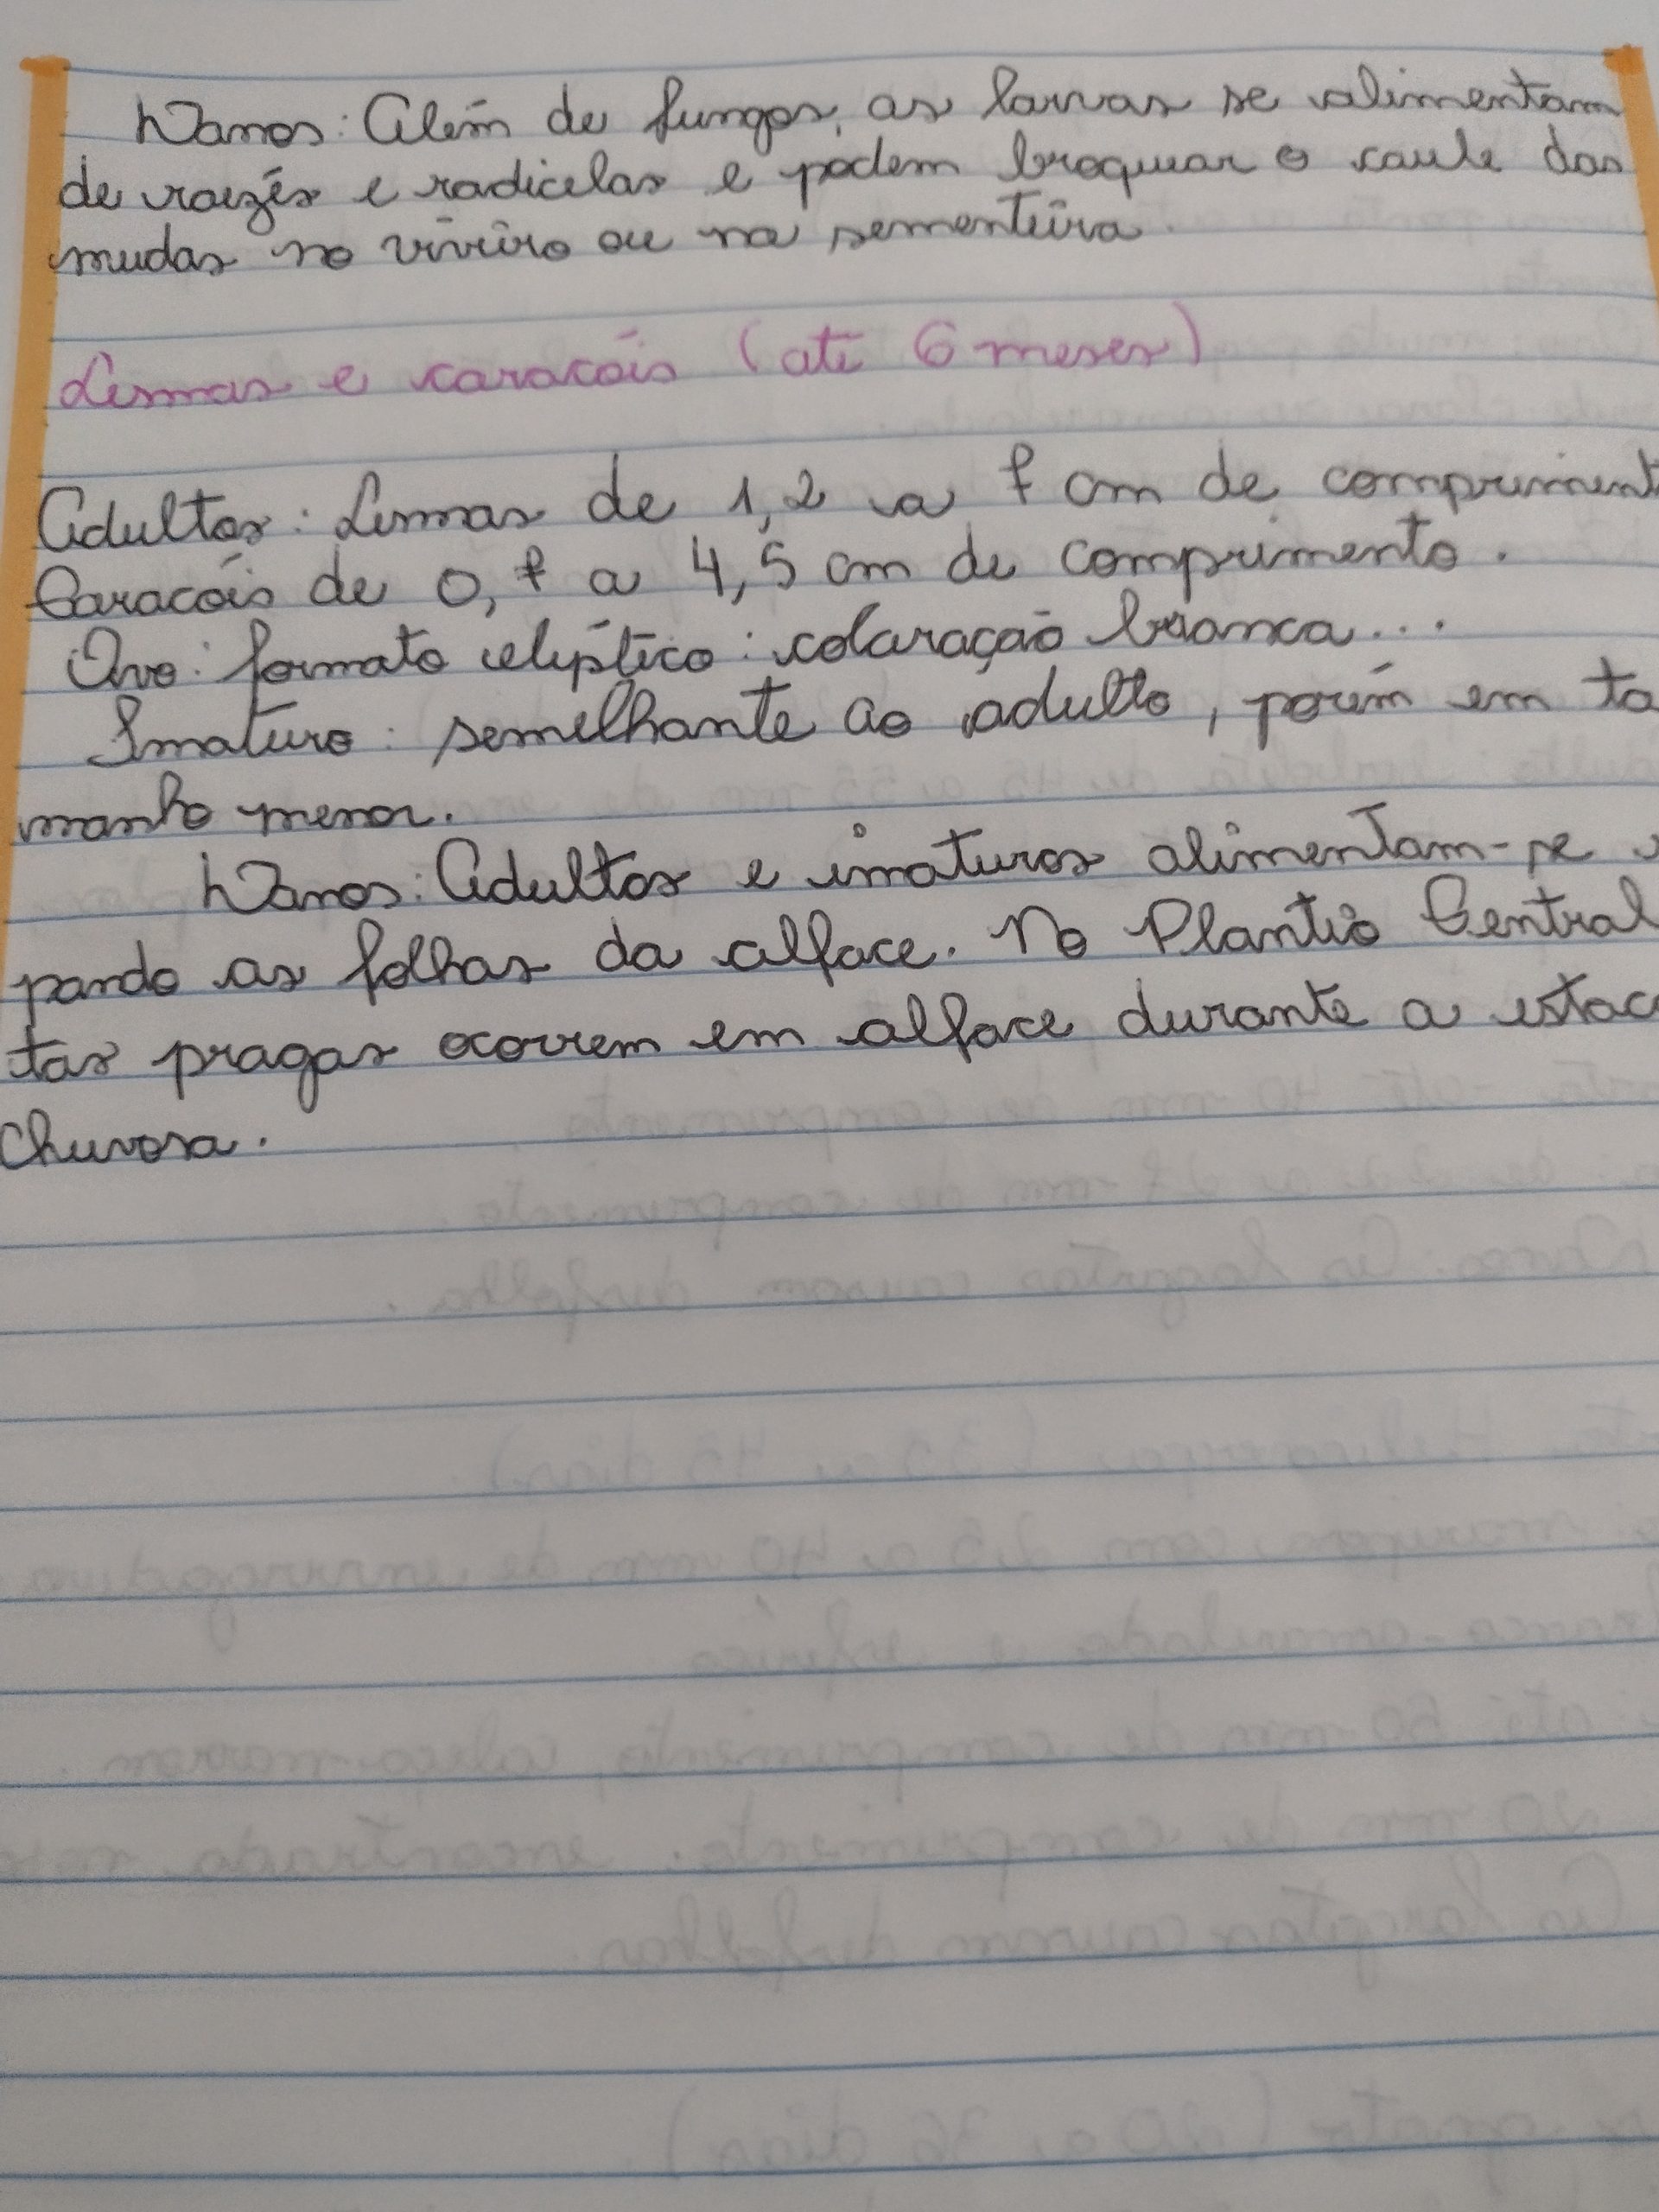 Danos: Além de fungos, as larvas se alimentam
de raízes e radicelas e podem broquear o caule das
mudas no viveiro ou na sementeira.
Lesmas e caracóis (até 6 meses)
Adultos: Lesmas de 1,2 a 7 cm de compriment
Caracóis de 0,7 a 4,5 cm de comprimento.
Ovo: formato elíptico: coloração branca...
Imaturo: semelhante ao adulto, porém em ta
manho menor.
Danos: Adultos e imaturos alimentam-se
pando as folhas da alface. No Plantio Central
tas pragas ocorrem em alface durante a estac
Chuvosa.